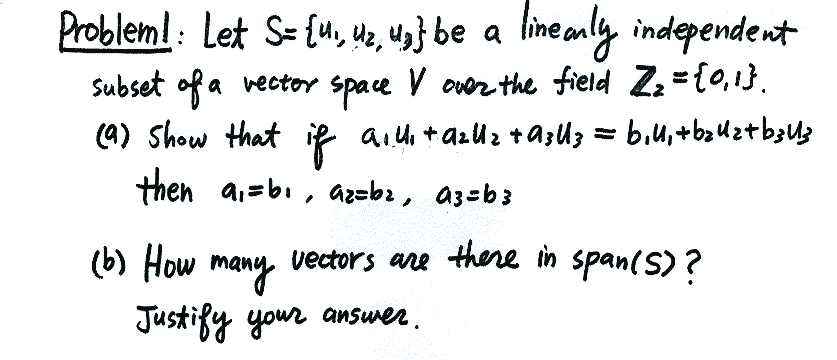 Problem 1: Let S={u₁, u₂, u₃} be a linearly independent
subset of a vector space V over the field Z₂={0,1}.
(a) Show that if a₁u₁+a₂u₂+a₃u₃ = b₁u₁+b₂u₂+b₃u₃
then a₁=b₁, a₂=b₂, a₃=b₃
(b) How many vectors are there in span(S)?
Justify your answer.